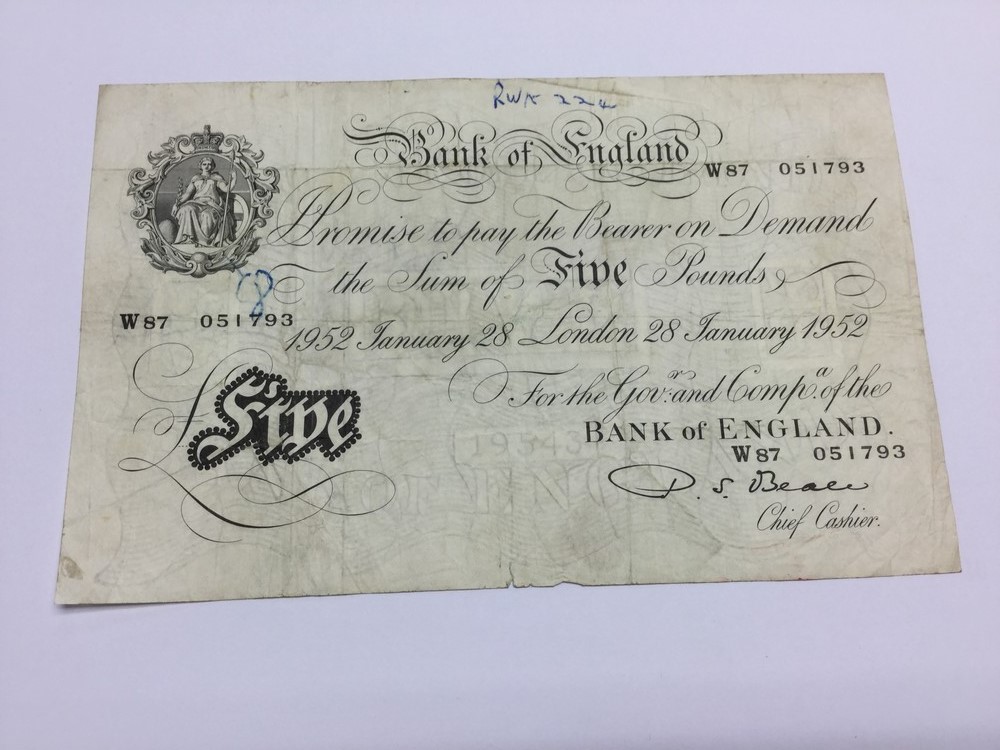 RWK 224
Bank of England
W87 051793
I Promise to pay the Bearer on Demand
the Sum of Five Pounds
W87 051793
1952 January 28 London 28 January 1952
For the Gov.r and Comp.a of the
BANK of ENGLAND.
£Five
W87 051793
P. S. Beale
Chief Cashier.